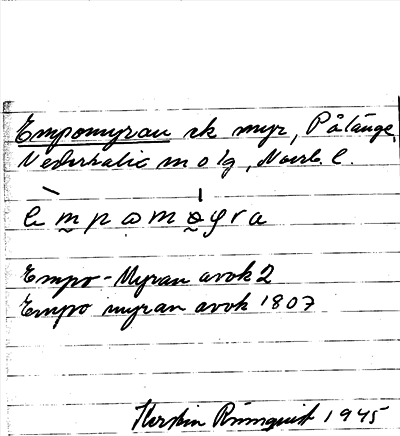 Empomyran sk myr, Pålänge,
Nederkalix m o lg, Norrb. l.
Empo-Myran avsk 2
Empo myran avsk 1807
Kerstin Rönnquist 1945